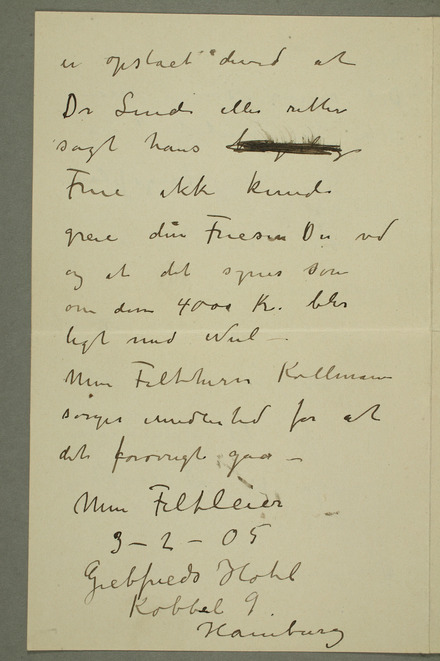 er opstaet derved at
Dr Linde eller rettere
sagt hans
Frue ikke kunde
greie din Friesen Du ved
og at det synes som
om dem 4000 Kr. blir
ligt med Nul —
Min Feltherre Kollmann
sørger imidlertid for at
det forøvrigt gaar —
Min Feltleier
3 – 2 – 05
Hotel
Kobbel 9.
Hamburg